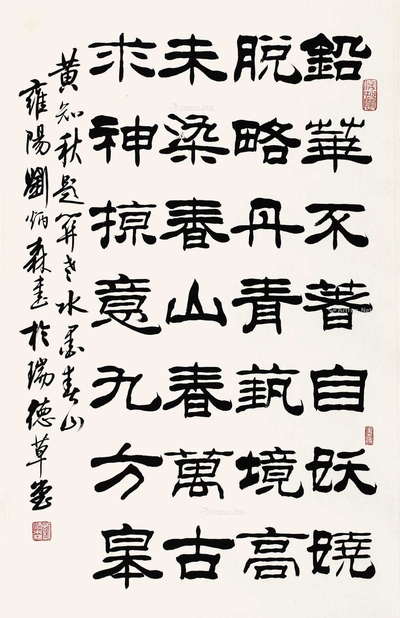 鉛華不著自妖嬈
脫略丹青蓺境高
未染春山春萬古
求神掠意九方皋
黃知秋題羿老水墨春山
雍陽劉炳森書於瑞德草堂